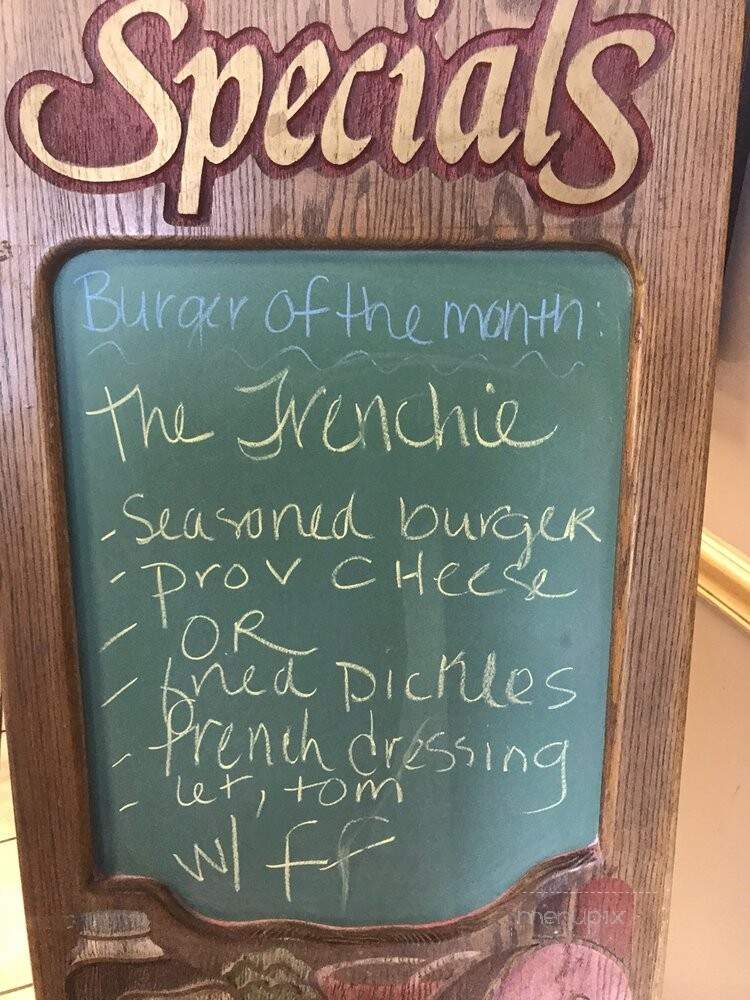 Specials
Burger of the month:
the Frenchie
- Seasoned burger
- prov CHeese
- OR
- fried pickles
- french dressing
- let, tom
w/ ff
menupix